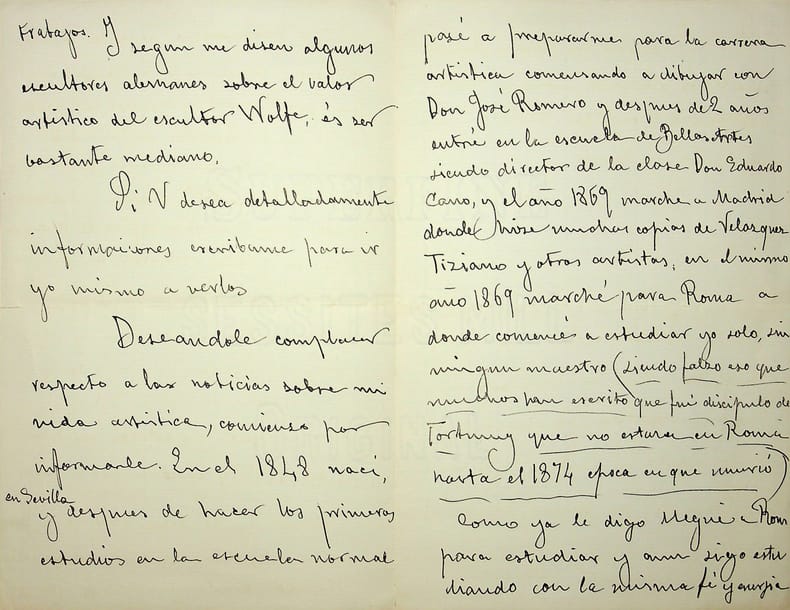 trabajos. Y
segun me disen algunos
escultores alemanes sobre el valor
artistico del escultor Wolfe, és ser
bastante mediano.
Si V desea detalladamente
informaciones escribame para ir
yo mismo a verlos
Deseandole complacer
respecto a las noticias sobre mi
vida artistica, comienso por
informarle. En el 1848 naci,
en Sevilla
y despues de hacer los primeros
estudios en la escuela normal
pasé a prepararme para la carrera
artistica comensando a dibujar con
Don José Romero y despues de 2 años
entré en la escuela de Bellas Artes
siendo director de la clase Don Eduardo
Cano, y el año 1869 marche a Madrid
donde hise muchas copias de Velazquez
Tiziano y otros artistas; en el mismo
año 1869 marché para Roma a
donde comencé a estudiar yo solo, sin
ningun maestro (siendo falzo eso que
muchos han escrito que fui discipulo de
Fortuny que no estaba en Roma
hasta el 1874 epoca en que murió)
Como ya le digo llegué a Roma
para estudiar y aun sigo estu
diando con la misma fé y energia